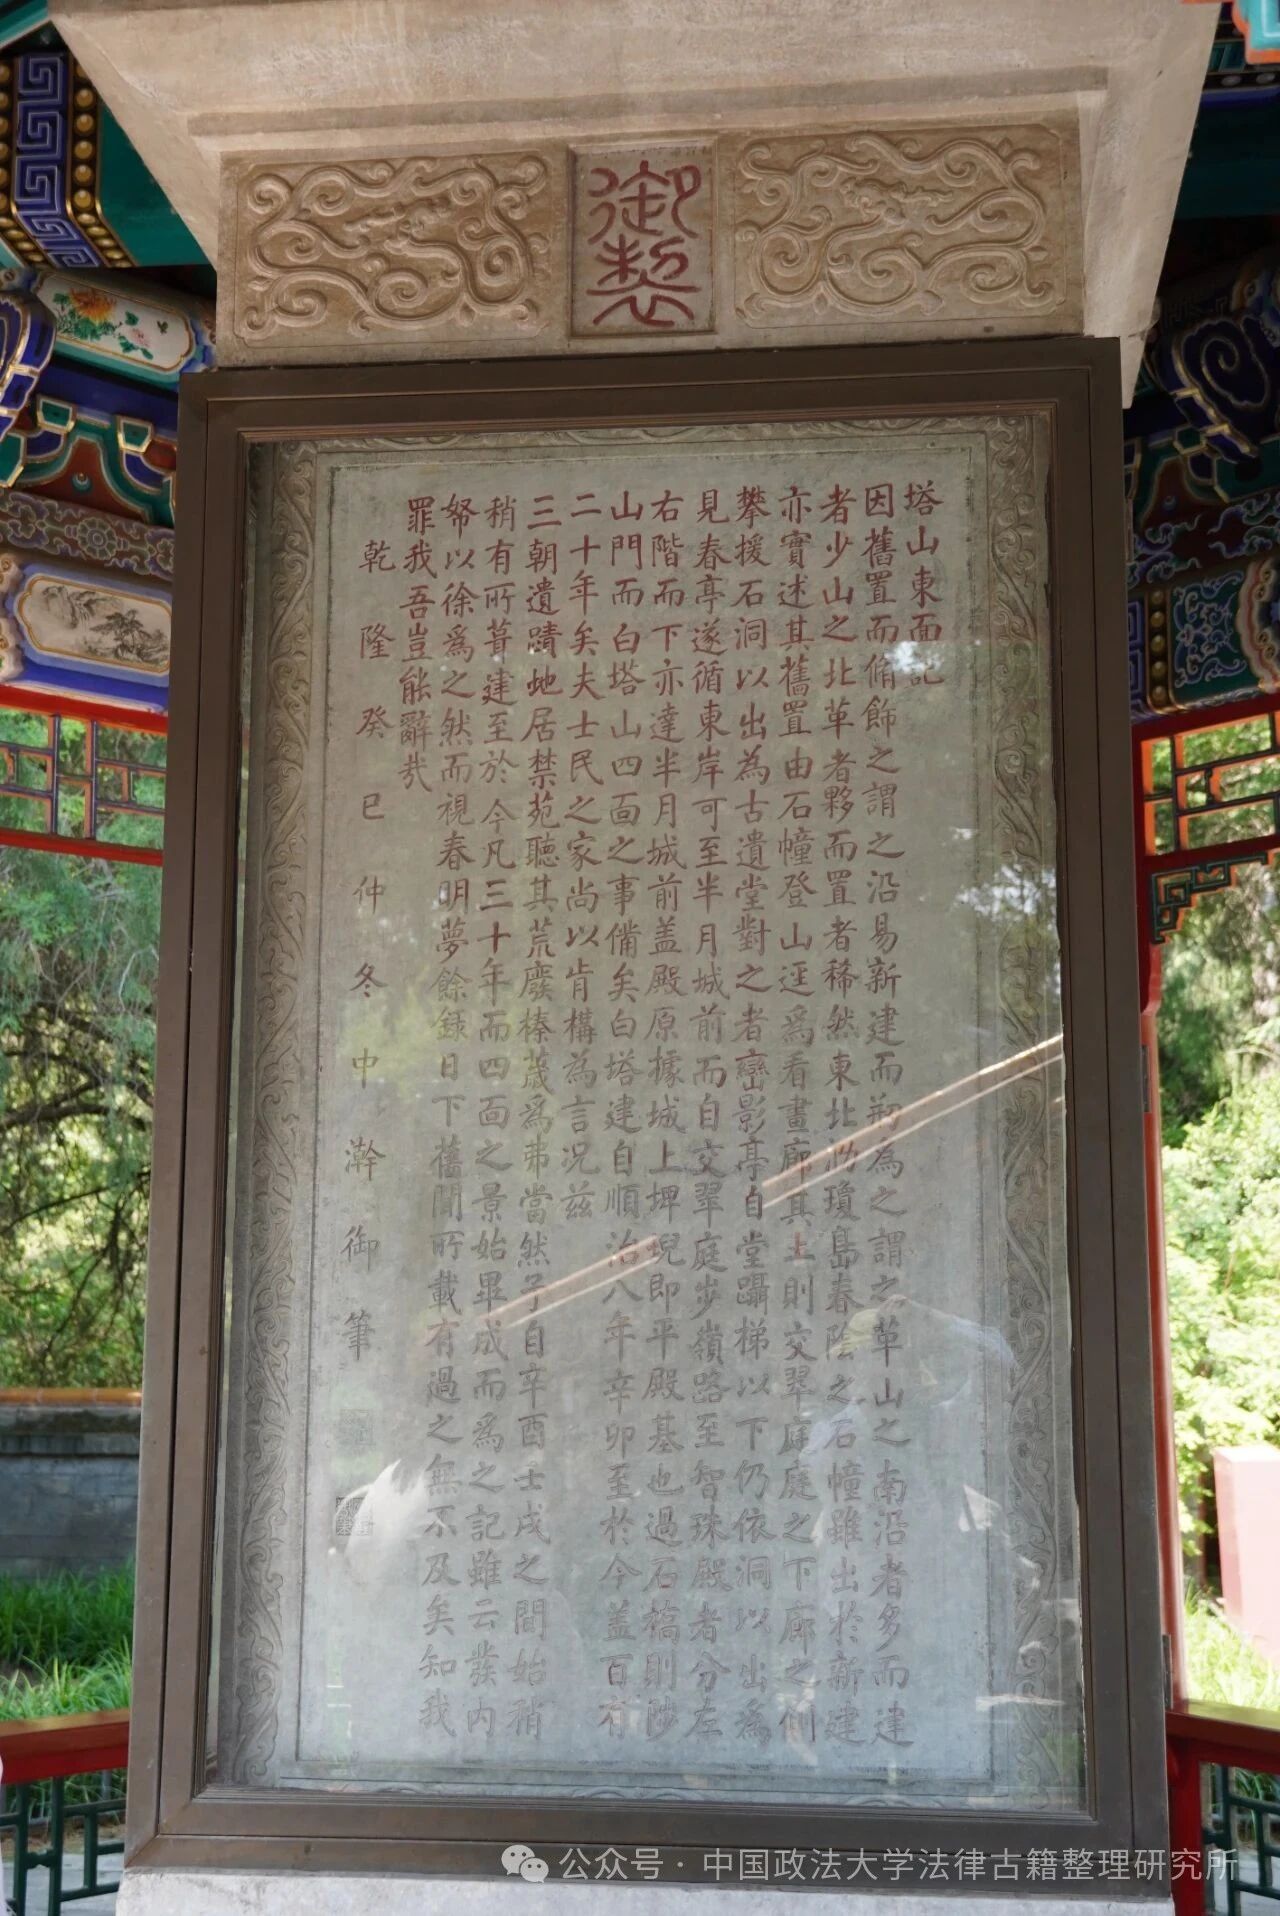 御製
塔山東面記
因舊置而脩飾之謂之沿易新建而刱為之謂之革山之南沿者多而建
者少山之北革者夥而置者稀然東北泐瓊島春陰之石幢雖出於新建
亦實述其舊置由石幢登山逕爲看畫廊其上則交翠庭庭之下廊之側
攀援石洞以出為古遺堂對之者巒影亭自堂躡梯以下仍依洞以出爲
見春亭遂循東岸可至半月城前而自交翠庭步嶺路至智珠殿者分左
右階而下亦達半月城前盖殿原據城上埤堄即平殿基也過石橋則陟
山門而白塔山四面之事備矣白塔建自順治八年辛卯至於今盖百有
二十年矣夫士民之家尚以肯構為言况茲
三朝遺蹟地居禁苑聽其荒廢榛薉爲弗當然予自辛酉壬戌之間始稍
稍有所葺建至於今凡三十年而四面之景始畢成而為之記雖云發內
帑以徐爲之然而視春明夢餘錄日下舊聞所載有過之無不及矣知我
罪我吾豈能辭㢤
乾隆癸巳仲冬中澣御筆
公众号 · 中国政法大学法律古籍整理研究所